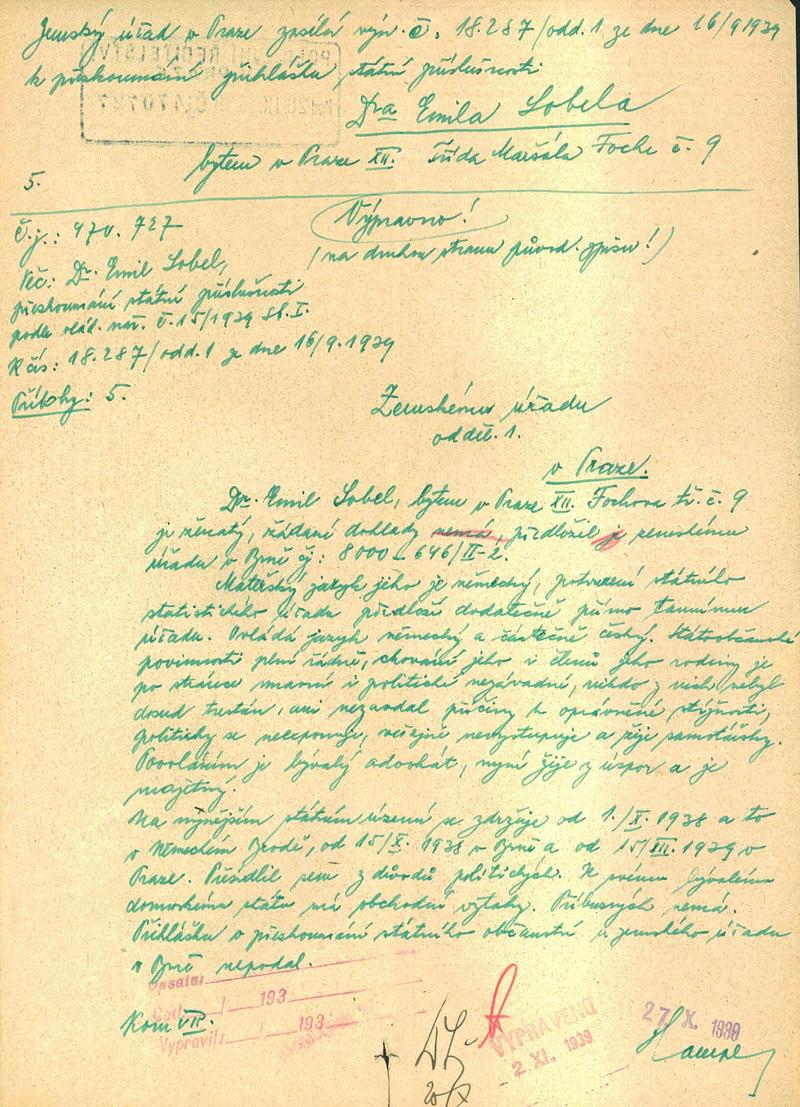 Zemský úřad v Praze zasílá výn. č. 18.287/odd.1 ze dne 16/9 1939
k přezkoumání přihlášku státní příslušnosti
Dra Emila Sobela
bytem v Praze XII. Třída Maršála Foche č. 9
5.
Č.j.: 470.727
Výpravno!
(na druhou stranu původ. spisu!)
Věc: Dr. Emil Sobel,
přezkoumání státní příslušnosti
podle vlád. nař. č. 15/1939 Sb. I.
K čís: 18.287/odd.1 ze dne 16/9.1939
Přílohy: 5.
Zemskému úřadu
odděl. 1.
v Praze.
Dr. Emil Sobel, bytem v Praze XII. Fochova tř. č. 9
je ženatý, žádané doklady nemá, předložil je zemskému
úřadu v Brně čj: 8000-646/II-2.
Mateřský jazyk jeho je německý, potvrzení státního
statistického úřadu předloží dodatečně přímo tamnímu
úřadu. Ovládá jazyk německý a částečně český. Státoobčanské
povinnosti plní řádně, chování jeho i členů jeho rodiny je
po stránce mravní i politické nezávadné, nikdo z nich nebyl
dosud trestán, ani nezavdal příčiny k oprávněné stížnosti,
politicky se neexponuje, veřejně nevystupuje a žije samotářsky.
Povoláním je bývalý advokát, nyní žije z úspor a je
majetný.
Na nynějším státním území se zdržuje od 1./X. 1938 a to
v Německém Brodě, od 15/X. 1938 v Brně a od 15/III. 1939 v
Praze. Přesídlil sem z důvodů politických. Ke svému bývalému
domovskému státu má obchodní vztahy. Příbuzných nemá.
Přihlášku o přezkoumání státního občanství u zemského úřadu
v Brně nepodal.
Kom VII.
193
Vypravil: 193
VYPRAVENO
2 XI. 1939
27 X. 1939
20/X